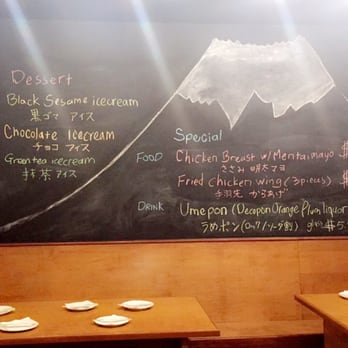 Dessert
Black Sesame icecream
黒ゴマ アイス
Chocolate Icecream
チョコ アイス
Green tea icecream
抹茶 アイス
Special
FOOD
Chicken Breast w/ Mentaimayo $
ささみ 明太マヨ
Fried chicken wing (3pieces) $
手羽先 からあげ
DRINK
Umepon (Decopon Orange Plum liquor
うめポン (ロック/ソーダ割) $5